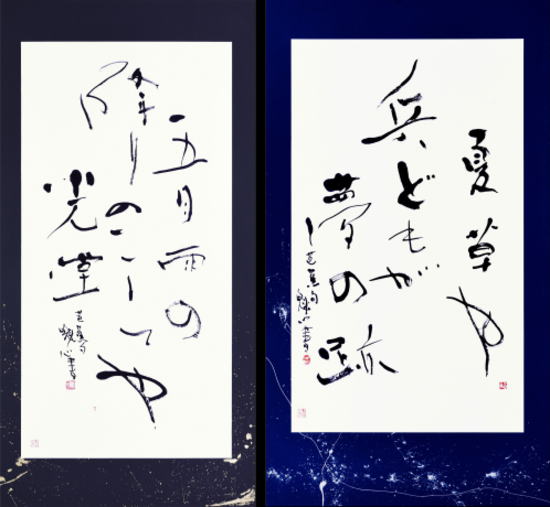 夏草や
兵どもが
夢の跡
芭蕉句
五月雨の
降りのこしてや
光堂
芭蕉句
心書